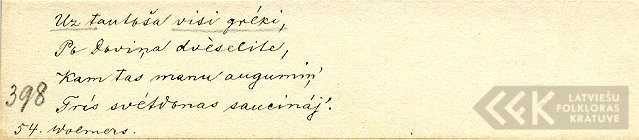 Uz tautoša visi grēki,
Po Doviņa dvēselite,
Kam tas manu augumiņ'
398
Trīs svētdonas saucināj'.
54. Wolmers.
LATVIEŠU
FOLKLORAS
KRĀTUVE